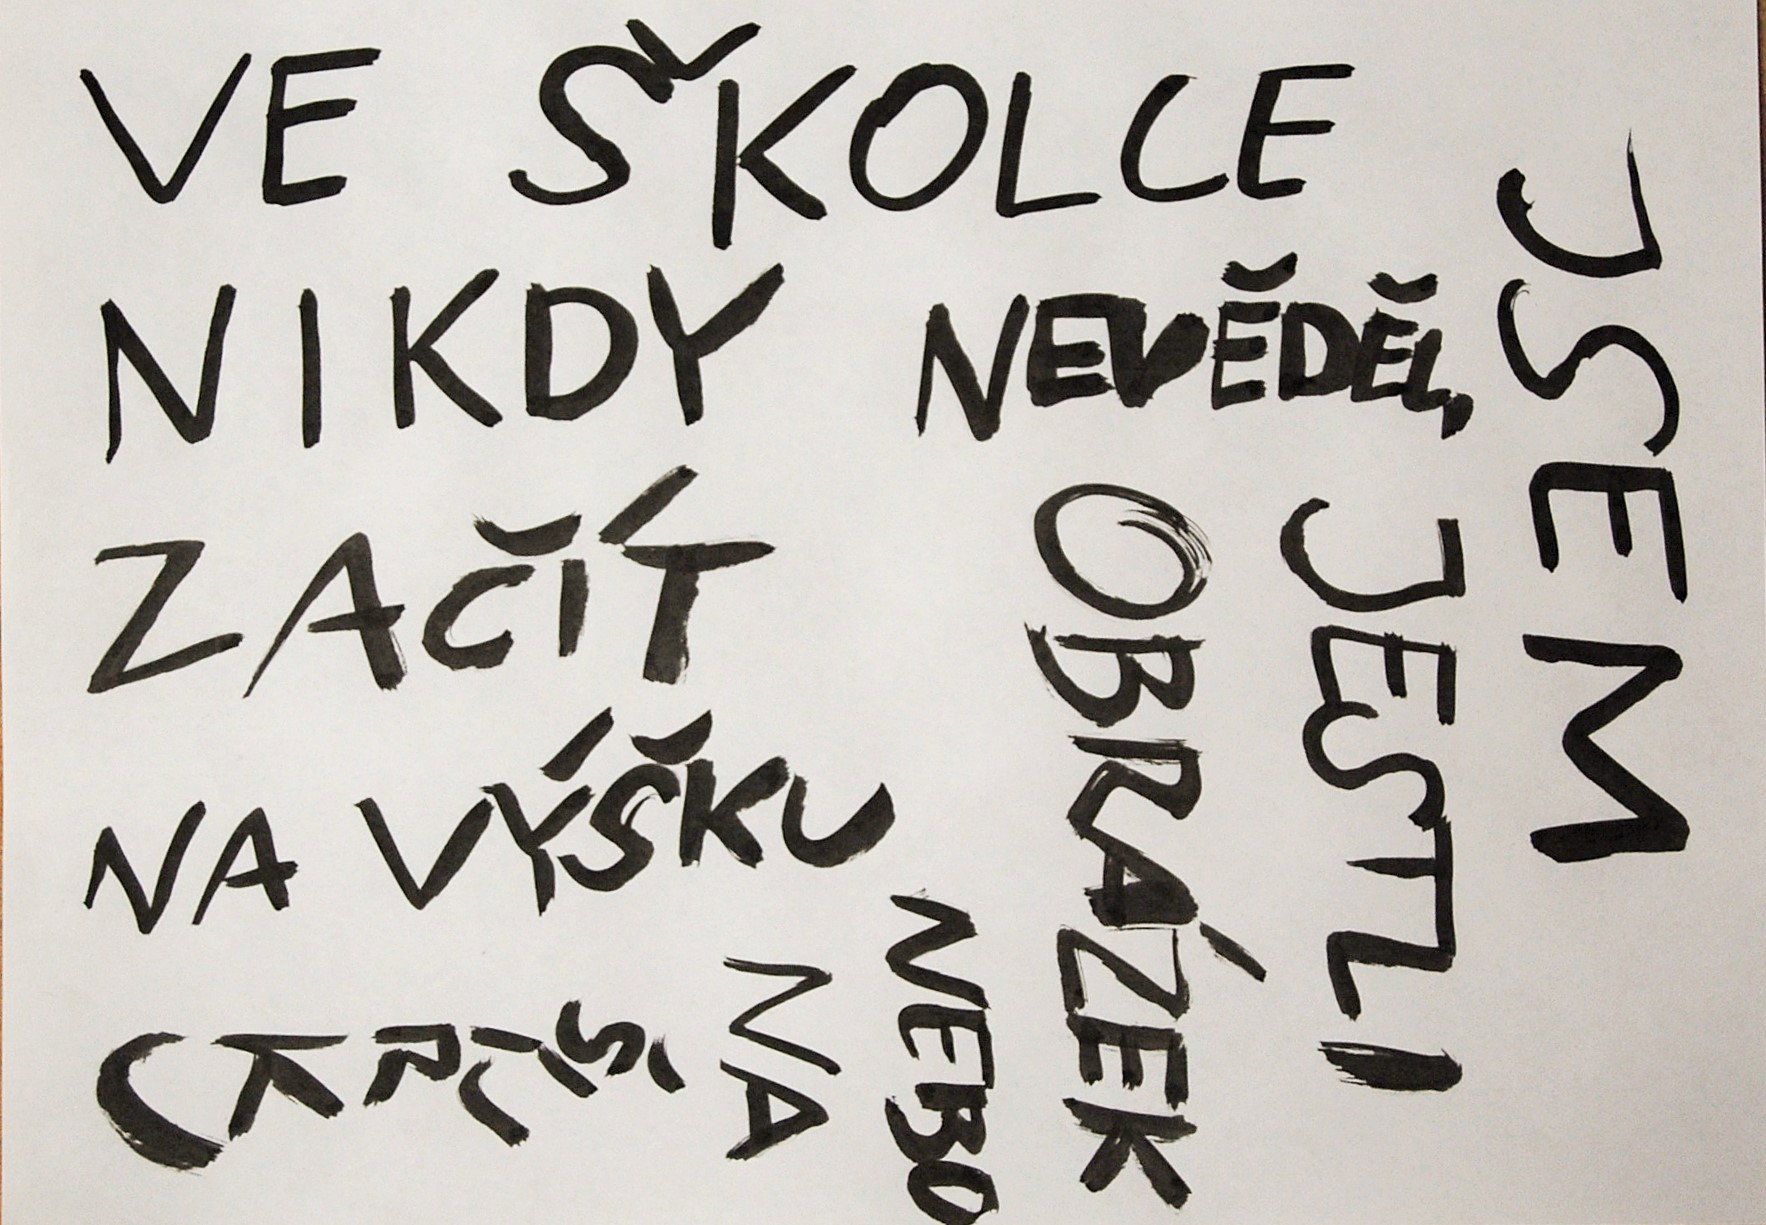 VE ŠKOLCE
JSEM
NIKDY NEVĚDĚL,
JESTLI
OBRÁZEK
ZAČÍT
NA VÝŠKU
NEBO
NA
ŠÍŘKU